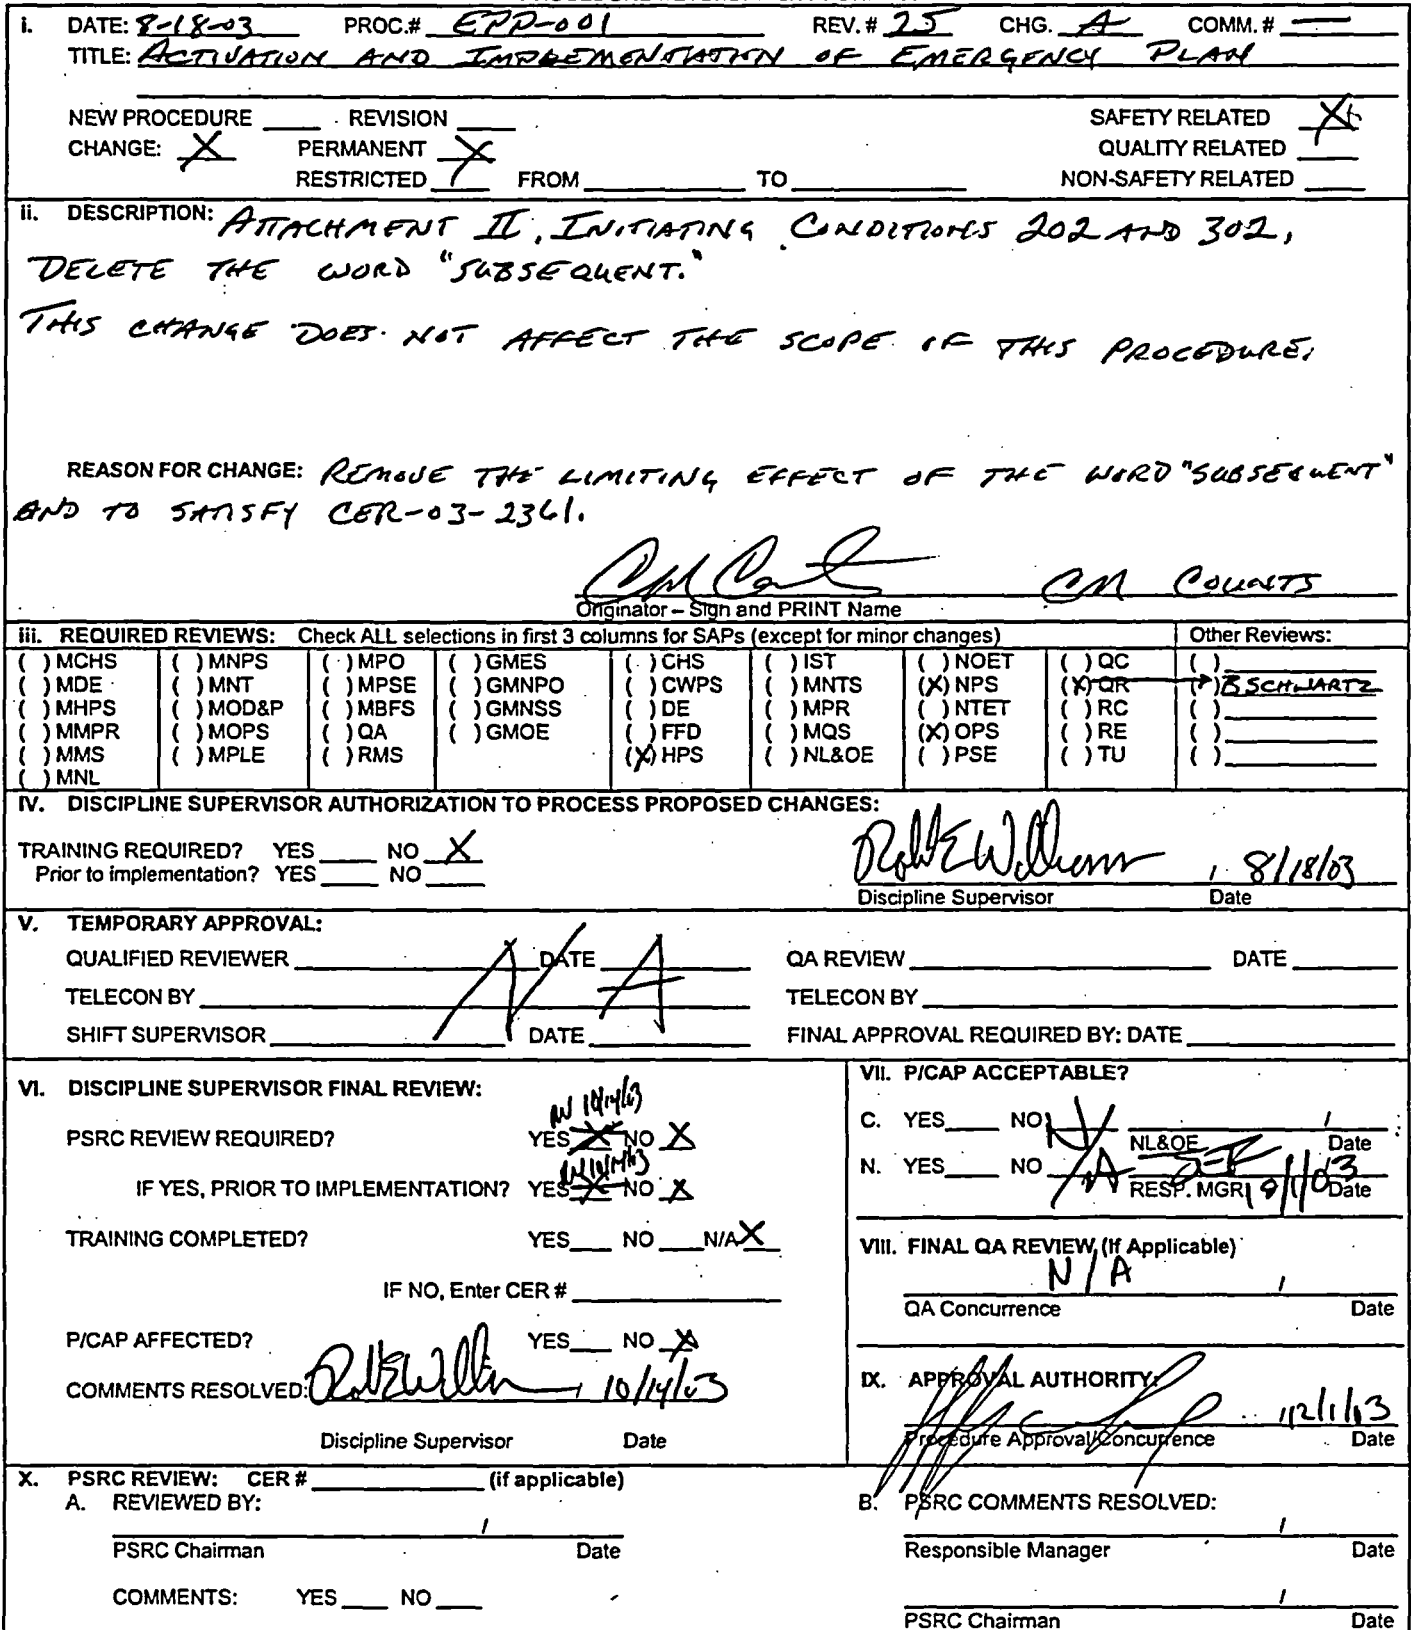 i. DATE: 8-18-03 PROC.# EPP-001 REV. # 25 CHG. A COMM. # —
TITLE: ACTIVATION AND IMPLEMENTATION OF EMERGENCY PLAN
NEW PROCEDURE ____ REVISION ____ SAFETY RELATED X
CHANGE: X PERMANENT X QUALITY RELATED ____
RESTRICTED ____ FROM ____ TO ____ NON-SAFETY RELATED ____
ii. DESCRIPTION: ATTACHMENT II, INITIATING CONDITIONS 202 AND 302,
DELETE THE WORD "SUBSEQUENT."
THIS CHANGE DOES NOT AFFECT THE SCOPE OF THIS PROCEDURE.
REASON FOR CHANGE: REMOVE THE LIMITING EFFECT OF THE WORD "SUBSEQUENT"
AND TO SATISFY CER-03-2361.
CM COUNTS
Originator – Sign and PRINT Name
iii. REQUIRED REVIEWS: Check ALL selections in first 3 columns for SAPs (except for minor changes) Other Reviews:
( ) MCHS ( ) MNPS ( ) MPO ( ) GMES ( ) CHS ( ) IST ( ) NOET ( ) QC ( ) ____
( ) MDE ( ) MNT ( ) MPSE ( ) GMNPO ( ) CWPS ( ) MNTS (X) NPS (X) QR ( ) B SCHWARTZ
( ) MHPS ( ) MOD&P ( ) MBFS ( ) GMNSS ( ) DE ( ) MPR ( ) NTET ( ) RC ( ) ____
( ) MMPR ( ) MOPS ( ) QA ( ) GMOE ( ) FFD ( ) MQS (X) OPS ( ) RE ( ) ____
( ) MMS ( ) MPLE ( ) RMS (X) HPS ( ) NL&OE ( ) PSE ( ) TU ( ) ____
( ) MNL
IV. DISCIPLINE SUPERVISOR AUTHORIZATION TO PROCESS PROPOSED CHANGES:
TRAINING REQUIRED? YES ____ NO X
Prior to implementation? YES ____ NO ____ 8/18/03
Discipline Supervisor Date
V. TEMPORARY APPROVAL:
N/A
QUALIFIED REVIEWER ____ DATE ____ QA REVIEW ____ DATE ____
TELECON BY ____ TELECON BY ____
SHIFT SUPERVISOR ____ DATE ____ FINAL APPROVAL REQUIRED BY: DATE ____
VI. DISCIPLINE SUPERVISOR FINAL REVIEW:
10/14/03
PSRC REVIEW REQUIRED? YES X NO X
10/14/03
IF YES, PRIOR TO IMPLEMENTATION? YES X NO X
TRAINING COMPLETED? YES ____ NO ____ N/A X
IF NO, Enter CER # ____
P/CAP AFFECTED? YES ____ NO X
COMMENTS RESOLVED: 10/14/03
Discipline Supervisor Date
VII. P/CAP ACCEPTABLE?
C. YES ____ NO N/A /
NL&OE Date
N. YES ____ NO
RESP. MGR Date
VIII. FINAL QA REVIEW (If Applicable)
N/A /
QA Concurrence Date
IX. APPROVAL AUTHORITY:
12/1/03
Procedure Approval/Concurrence Date
X. PSRC REVIEW: CER # ____ (if applicable)
A. REVIEWED BY: B. PSRC COMMENTS RESOLVED:
/ /
PSRC Chairman Date Responsible Manager Date
COMMENTS: YES ____ NO ____ /
PSRC Chairman Date